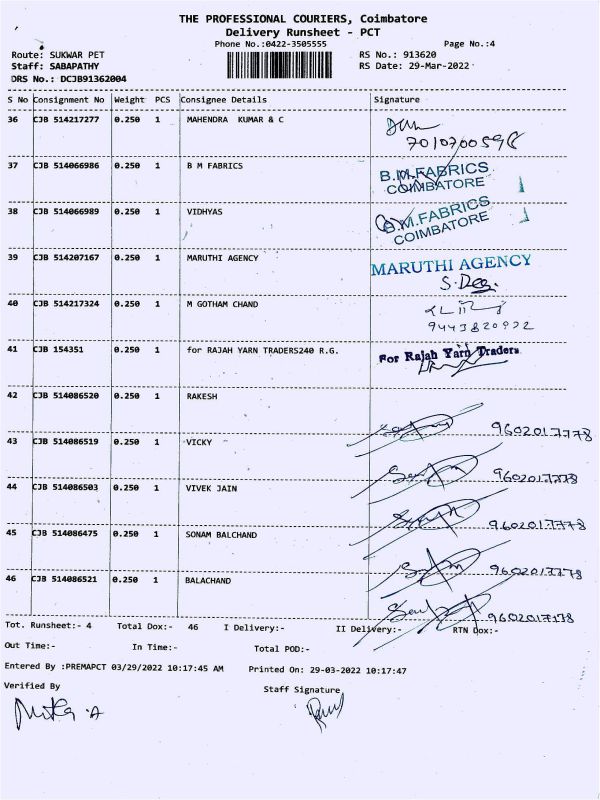 THE PROFESSIONAL COURIERS, Coimbatore
Delivery Runsheet - PCT
Phone No.:0422-3505555 Page No.:4
Route: SUKWAR PET RS No.: 913620
Staff: SABAPATHY RS Date: 29-Mar-2022
DRS No.: DCJB91362004
S No Consignment No Weight PCS Consignee Details Signature
36 CJB 514217277 0.250 1 MAHENDRA KUMAR & C
7010700598
37 CJB 514066986 0.250 1 B M FABRICS
B.M.FABRICS
COIMBATORE
38 CJB 514066989 0.250 1 VIDHYAS
B.M.FABRICS
COIMBATORE
39 CJB 514207167 0.250 1 MARUTHI AGENCY
MARUTHI AGENCY
40 CJB 514217324 0.250 1 M GOTHAM CHAND
9443820922
41 CJB 154351 0.250 1 for RAJAH YARN TRADERS240 R.G.
For Rajah Yarn Traders
42 CJB 514086520 0.250 1 RAKESH
9602017778
43 CJB 514086519 0.250 1 VICKY
9602017778
44 CJB 514086503 0.250 1 VIVEK JAIN
9602017778
45 CJB 514086475 0.250 1 SONAM BALCHAND
9602017778
46 CJB 514086521 0.250 1 BALACHAND
9602017178
Tot. Runsheet:- 4 Total Dox:- 46 I Delivery:- II Delivery:- RTN Dox:-
Out Time:- In Time:- Total POD:-
Entered By :PREMAPCT 03/29/2022 10:17:45 AM Printed On: 29-03-2022 10:17:47
Verified By Staff Signature